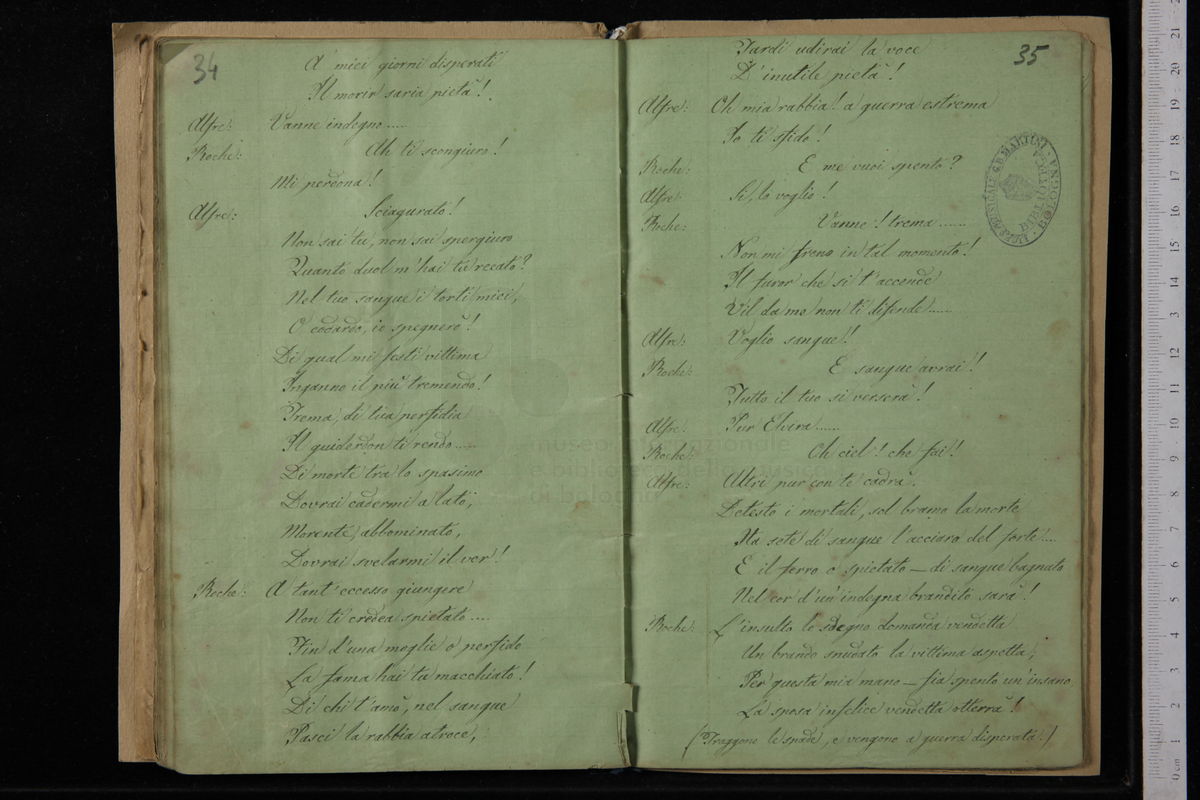 34
A' miei giorni disperati
Il morir saria pietà!
Alfre: Vanne indegno.....
Roche: Ah ti scongiuro!
Mi perdona!
Alfre: Sciagurato!
Non sai tu, non sai spergiuro
Quanto duol m'hai tu recato?
Nel tuo sangue i torti miei,
O codardo, io spegnerò!
Di qual mi festi vittima
Inganno il più tremendo!
Trema, di tua perfidia
Il guiderdon ti rendo.....
Di morte tra lo spasimo
Dovrai cadermi a lato;
Morente, abbominato,
Dovrai svelarmi il ver!
Roche: A tant'eccesso giungere
Non ti credea spietato....
Fin d'una moglie o perfido
La fama hai tu macchiato!
Di chi t'amò, nel sangue
Pasci la rabbia atroce,
35
Tardi udirai la voce
D'inutile pietà!
Alfre: Oh mia rabbia! a guerra estrema
Io ti sfido!
Roche: E me vuoi spento?
Alfre: Sì, lo voglio!
Roche: Vanne! trema......
Non mi freno in tal momento!
Il furor che sì t'accende
Vil da me non ti difende.....
Alfre: Voglio sangue!
Roche: E sangue avrai!
Tutto il tuo si verserà!
Alfre: Pur Elvira.....
Roche: Oh ciel! che fai!
Alfre: Altri pur con te cadrà.
Detesto i mortali, sol bramo la morte
Ha sete di sangue l'acciaro del forte....
E il ferro è spietato — di sangue bagnato
Nel cor d'un'indegna brandito sarà!
Roche: L'insulto lo sdegno domanda vendetta
Un brando snudato la vittima aspetta;
Per questa mia mano — fia spento un'insano
La sposa infelice vendetta otterrà!
(Traggono le spade, e vengono a guerra disperata.)
LICEO MUSICALE G.B. MARTINI BOLOGNA
BIBLIOTECA
museo internazionale
e biblioteca della musica
di bologna
0 cm 1 2 3 4 5 6 7 8 9 10 11 12 13 14 15 16 17 18 19 20 21